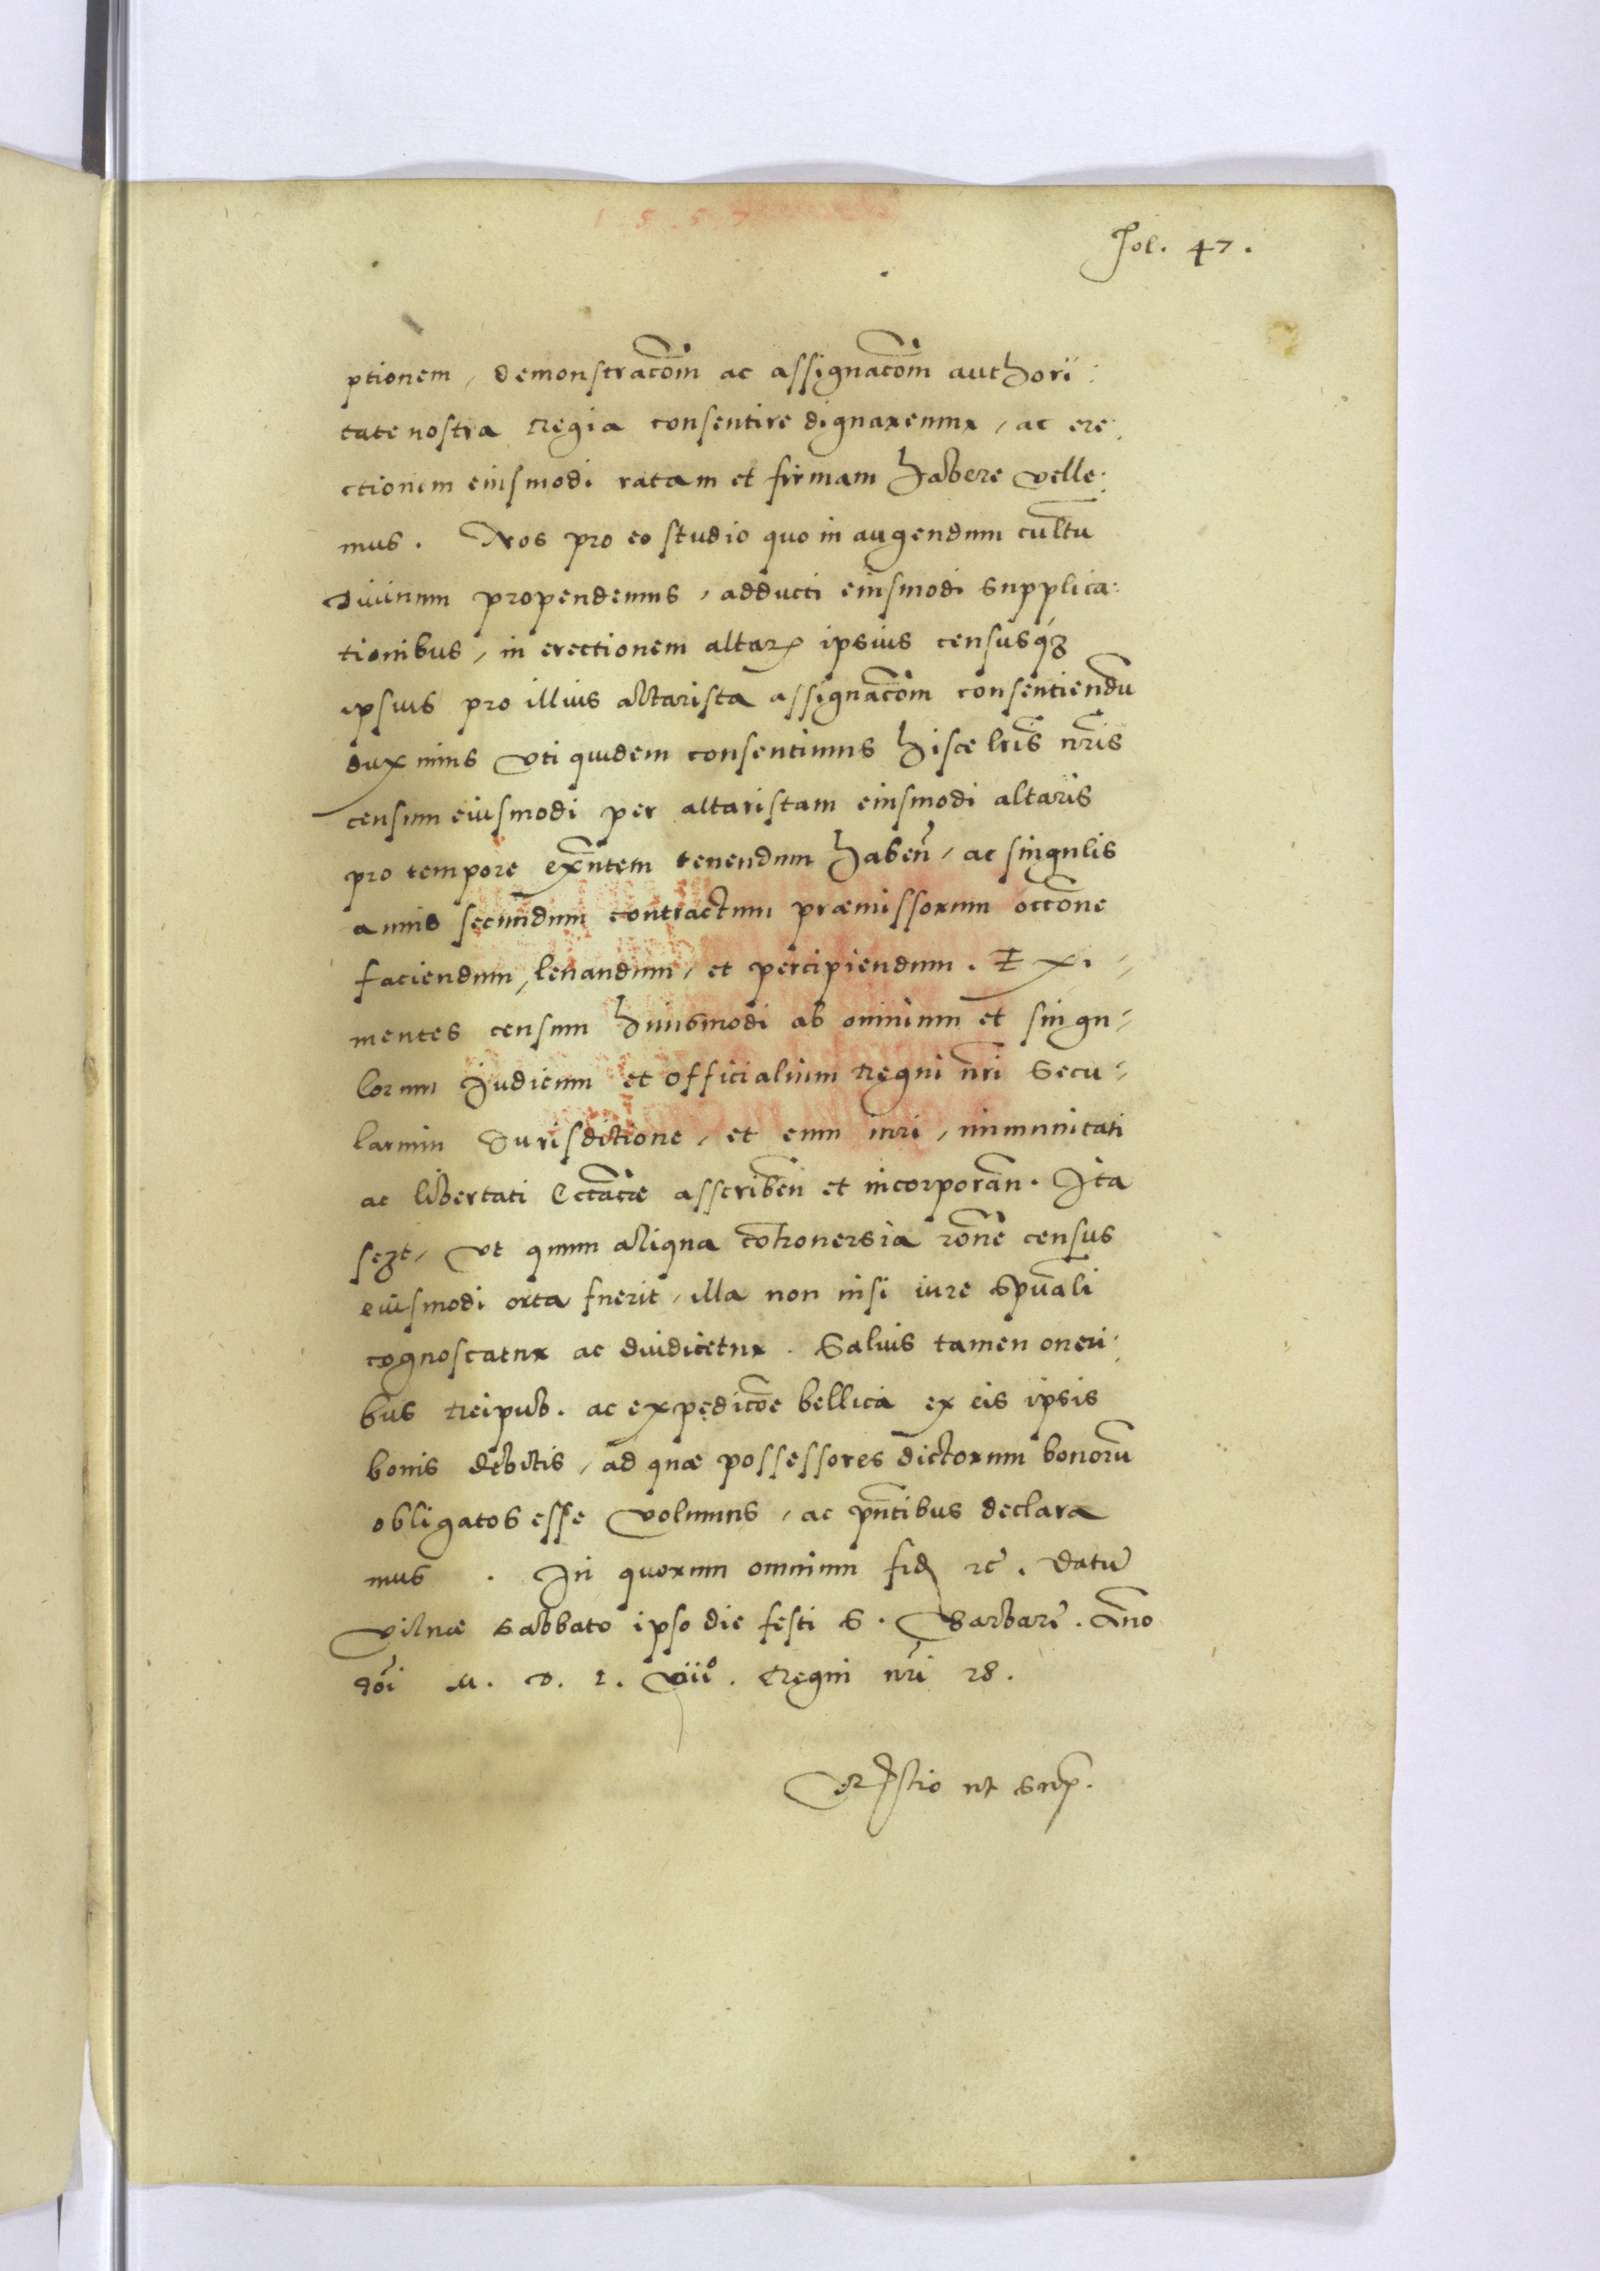 1 5 5 7
Fol. 47.
ptionem, demonstracōm ac assignacōm authori:
tate nostra Regia consentire dignaremur, ac ere:
ctionem eiusmodi ratam et firmam habere velle:
mus. Nos pro eo studio quo in augendum cultū
diuinum propendemus, adducti eiusmodi supplica:
tionibus, in erectionem altaris ipsius censusqȝ
ipsius pro illius altarista assignacōm consentiendū
duximus vti quidem consentimus hisce lrīs nrīs
censum eiusmodi per altaristam eiusmodi altaris
pro tempore exn̄tem tenendum habeñ, ac singulis
annis secundum contractum præmissorum occōne
faciendum, leuandum, et percipiendum. Exi=
mentes censum huiusmodi ab omnium et singu=
lorum Judicum et officialium Regni nrī Secu=
larium Jurisdictione, et eum iuri, immunitati
ac libertati Ecclācæ asscribeñ et incorporañ. Ita
sezt, vt quum aliqua cōtrouersia rōne census
eiusmodi orta fuerit, illa non nisi iure spūali
cognoscatur ac diiudicetur. Saluis tamen oneri:
bus Reipub. ac expedicōe bellica ex eis ipsis
bonis debitis, ad quæ possessores dictorum bonorū
obligatos esse volumus, ac pn̄tibus declara
mus. In quorum omnium fidē rc̄. Datū
Vilnæ sabbato ipso die festi S. Barbaræ. Anno
dōi M. D. L. viiº. Regni nrī 28.
Rēstio ut sup.